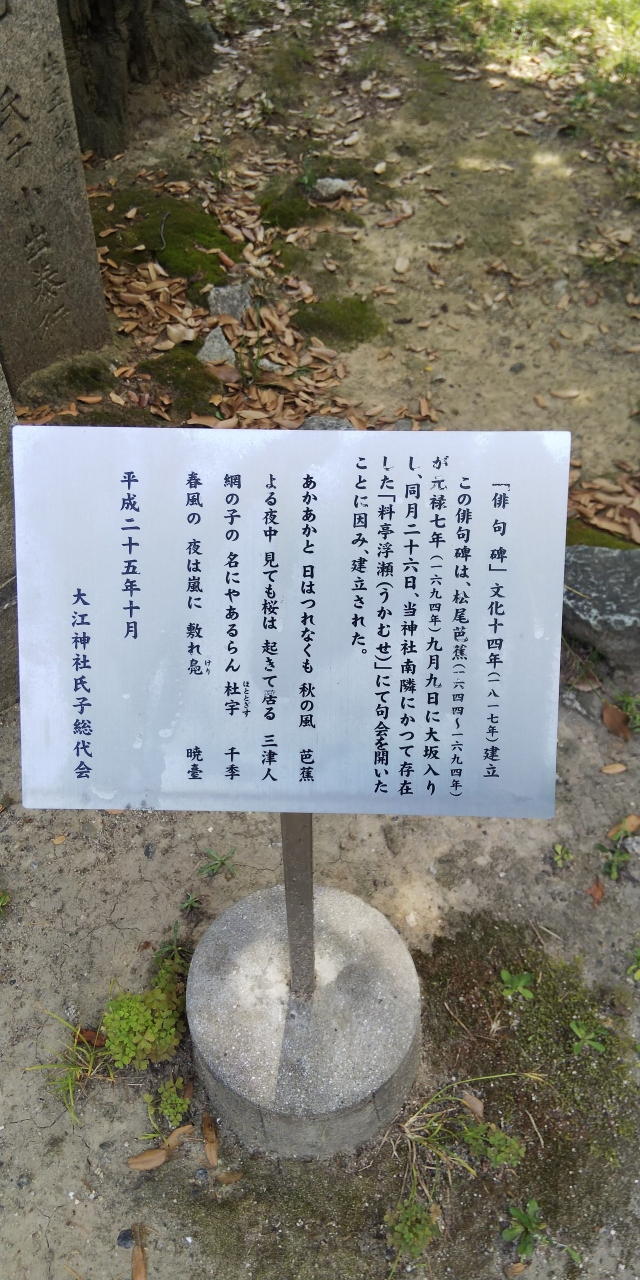 「俳句碑」文化十四年（一八一七年）建立
この俳句碑は、松尾芭蕉（一六四四〜一六九四年）
が元禄七年（一六九四年）九月九日に大坂入り
し、同月二十六日、当神社南隣にかつて存在
した「料亭浮瀬（うかむせ）」にて句会を開いた
ことに因み、建立された。
あかあかと 日はつれなくも 秋の風 芭蕉
よる夜中 見ても桜は 起きて居る 三津人
網の子の 名にやあるらん 杜宇 千季
ほととぎす
春風の 夜は嵐に 敷れ鳧 暁臺
けり
平成二十五年十月
大江神社氏子総代会